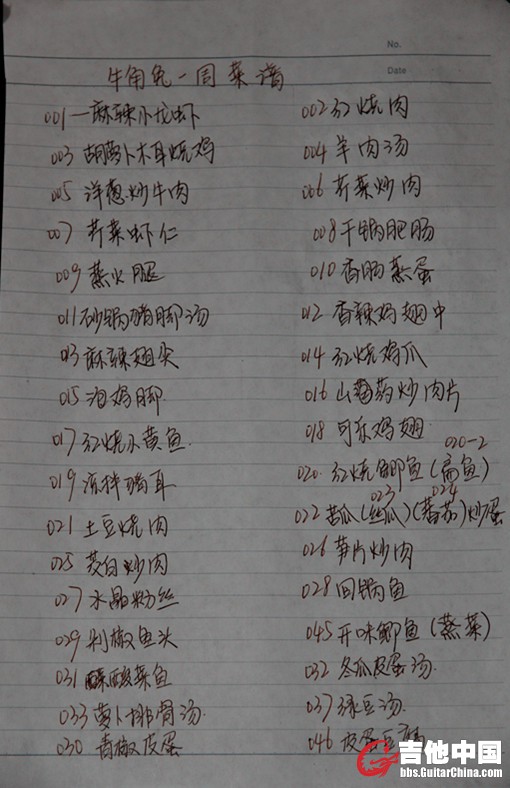 No.
Date
牛角兔一周菜谱
001一麻辣小龙虾 002红烧肉
003胡萝卜木耳烧鸡 004羊肉汤
005洋葱炒牛肉 006芹菜炒肉
007芹菜虾仁 008干锅肥肠
009蒸火腿 010香肠蒸蛋
011砂锅猪脚汤 012香辣鸡翅中
013麻辣翅尖 014红烧鸡爪
015泡鸡脚 016山药炒肉片
017红烧小黄鱼 018可乐鸡翅
020-2
019凉拌猪耳 020红烧鲫鱼(扁鱼)
023 024
021土豆烧肉 022苦瓜(丝瓜)(蕃茄)炒蛋
025茭白炒肉 026笋片炒肉
027水晶粉丝 028回锅鱼
029剁椒鱼头 045开味鲫鱼(蒸菜)
031酸菜鱼 032冬瓜皮蛋汤
033萝卜排骨汤 037绿豆汤
030青椒皮蛋 046皮蛋豆腐
吉他中国
bbs.GuitarChina.com